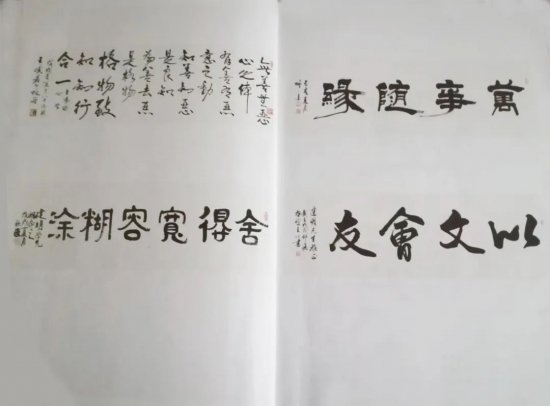 無善無惡
心之体
有善有惡
意之動
知善知惡
是良知
為善去惡
是格物
格物致
知知行
合一
舍得寬容糊涂
萬事隨緣
以文會友